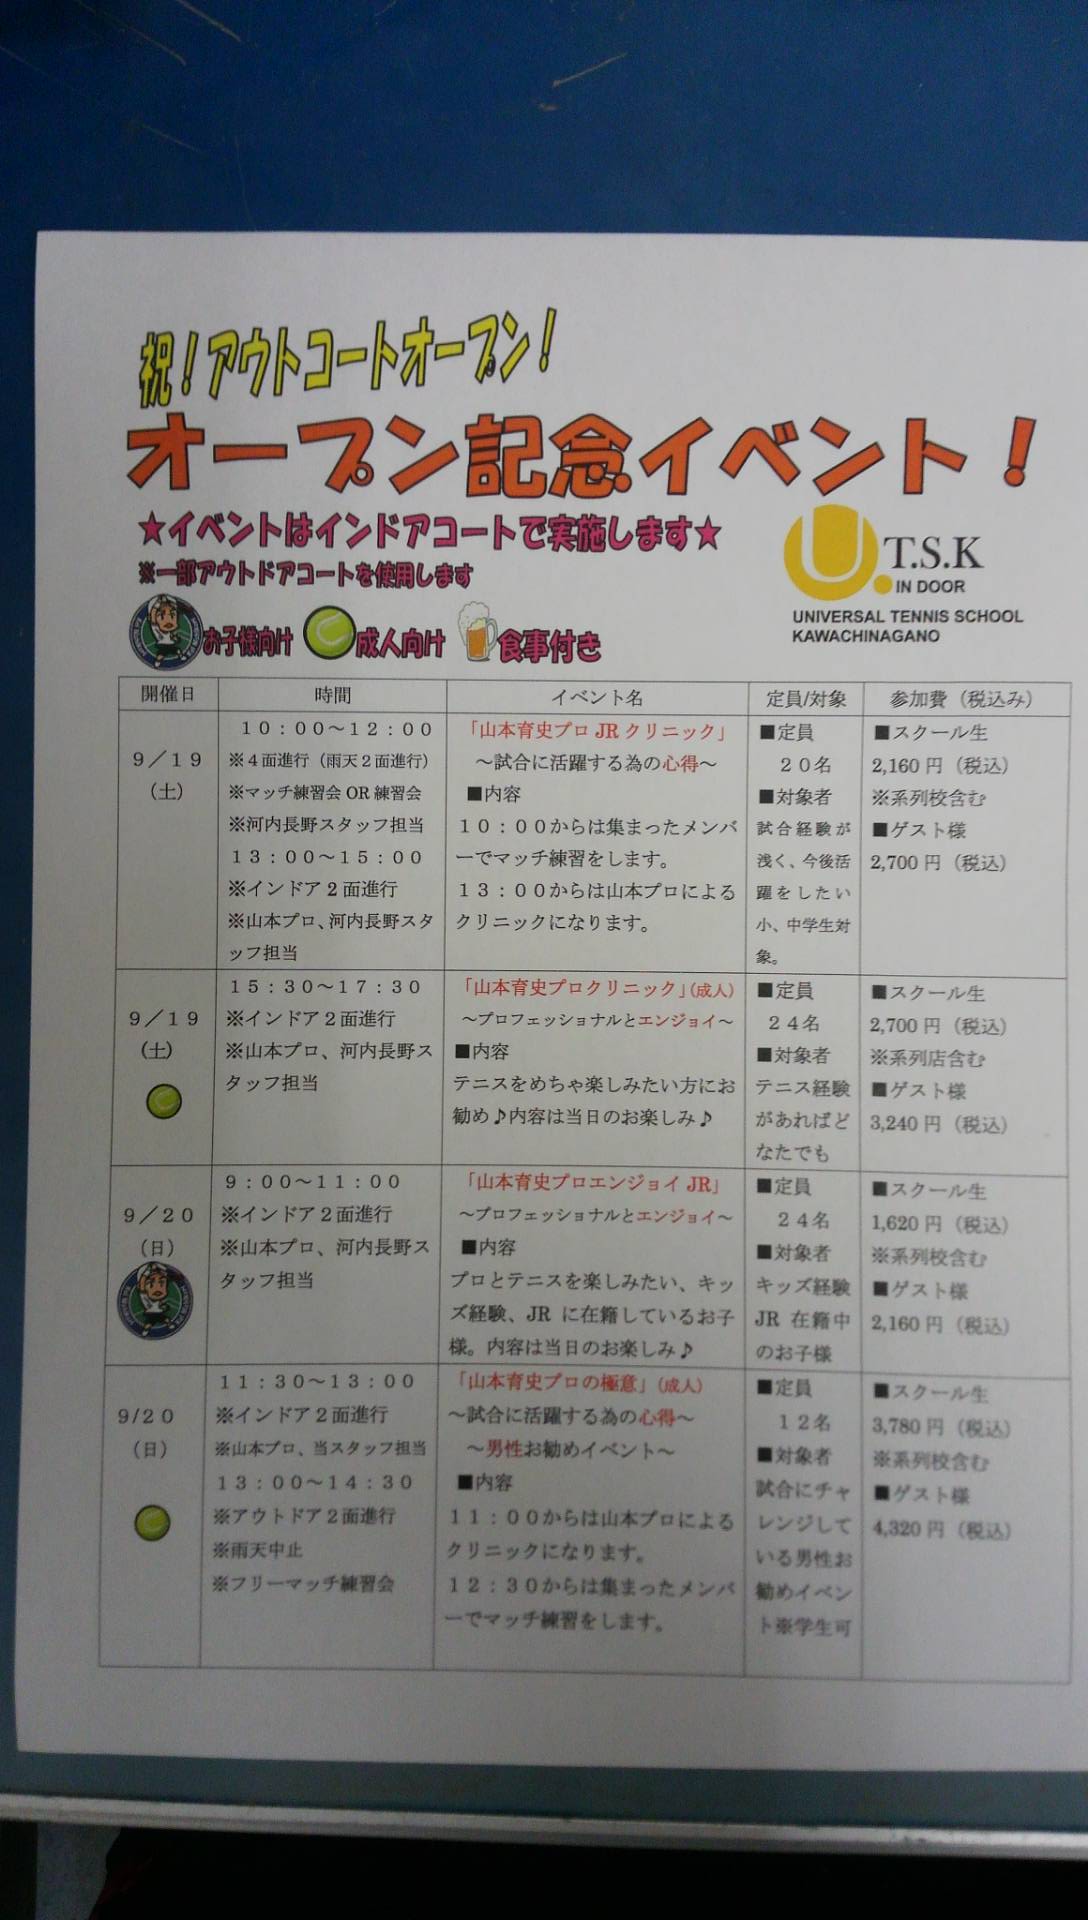 祝！アウトコートオープン！
オープン記念イベント！
★イベントはインドアコートで実施します★
※一部アウトドアコートを使用します
お子様向け 成人向け 食事付き
U.T.S.K
IN DOOR
UNIVERSAL TENNIS SCHOOL
KAWACHINAGANO
開催日 時間 イベント名 定員/対象 参加費（税込み）
９／１９
（土）
１０：００～１２：００
※４面進行（雨天２面進行）
※マッチ練習会 OR 練習会
※河内長野スタッフ担当
１３：００～１５：００
※インドア２面進行
※山本プロ、河内長野スタ
ッフ担当
「山本育史プロ JR クリニック」
～試合に活躍する為の心得～
■内容
１０：００からは集まったメンバ
ーでマッチ練習をします。
１３：００からは山本プロによる
クリニックになります。
■定員
２０名
■対象者
試合経験が
浅く、今後活
躍をしたい
小、中学生対
象。
■スクール生
2,160 円（税込）
※系列校含む
■ゲスト様
2,700 円（税込）
９／１９
（土）
１５：３０～１７：３０
※インドア２面進行
※山本プロ、河内長野ス
タッフ担当
「山本育史プロクリニック」（成人）
～プロフェッショナルとエンジョイ～
■内容
テニスをめちゃ楽しみたい方にお
勧め♪内容は当日のお楽しみ♪
■定員
２４名
■対象者
テニス経験
があればど
なたでも
■スクール生
2,700 円（税込）
※系列店含む
■ゲスト様
3,240 円（税込）
９／２０
（日）
９：００～１１：００
※インドア２面進行
※山本プロ、河内長野ス
タッフ担当
「山本育史プロエンジョイ JR」
～プロフェッショナルとエンジョイ～
■内容
プロとテニスを楽しみたい、キッ
ズ経験、JR に在籍しているお子
様。内容は当日のお楽しみ♪
■定員
２４名
■対象者
キッズ経験
JR 在籍中
のお子様
■スクール生
1,620 円（税込）
※系列校含む
■ゲスト様
2,160 円（税込）
9/20
（日）
１１：３０～１３：００
※インドア２面進行
※山本プロ、当スタッフ担当
１３：００～１４：３０
※アウトドア２面進行
※雨天中止
※フリーマッチ練習会
「山本育史プロの極意」（成人）
～試合に活躍する為の心得～
～男性お勧めイベント～
■内容
１１：００からは山本プロによる
クリニックになります。
１２：３０からは集まったメンバ
ーでマッチ練習をします。
■定員
１２名
■対象者
試合にチャ
レンジして
いる男性お
勧めイベン
ト※学生可
■スクール生
3,780 円（税込）
※系列校含む
■ゲスト様
4,320 円（税込）